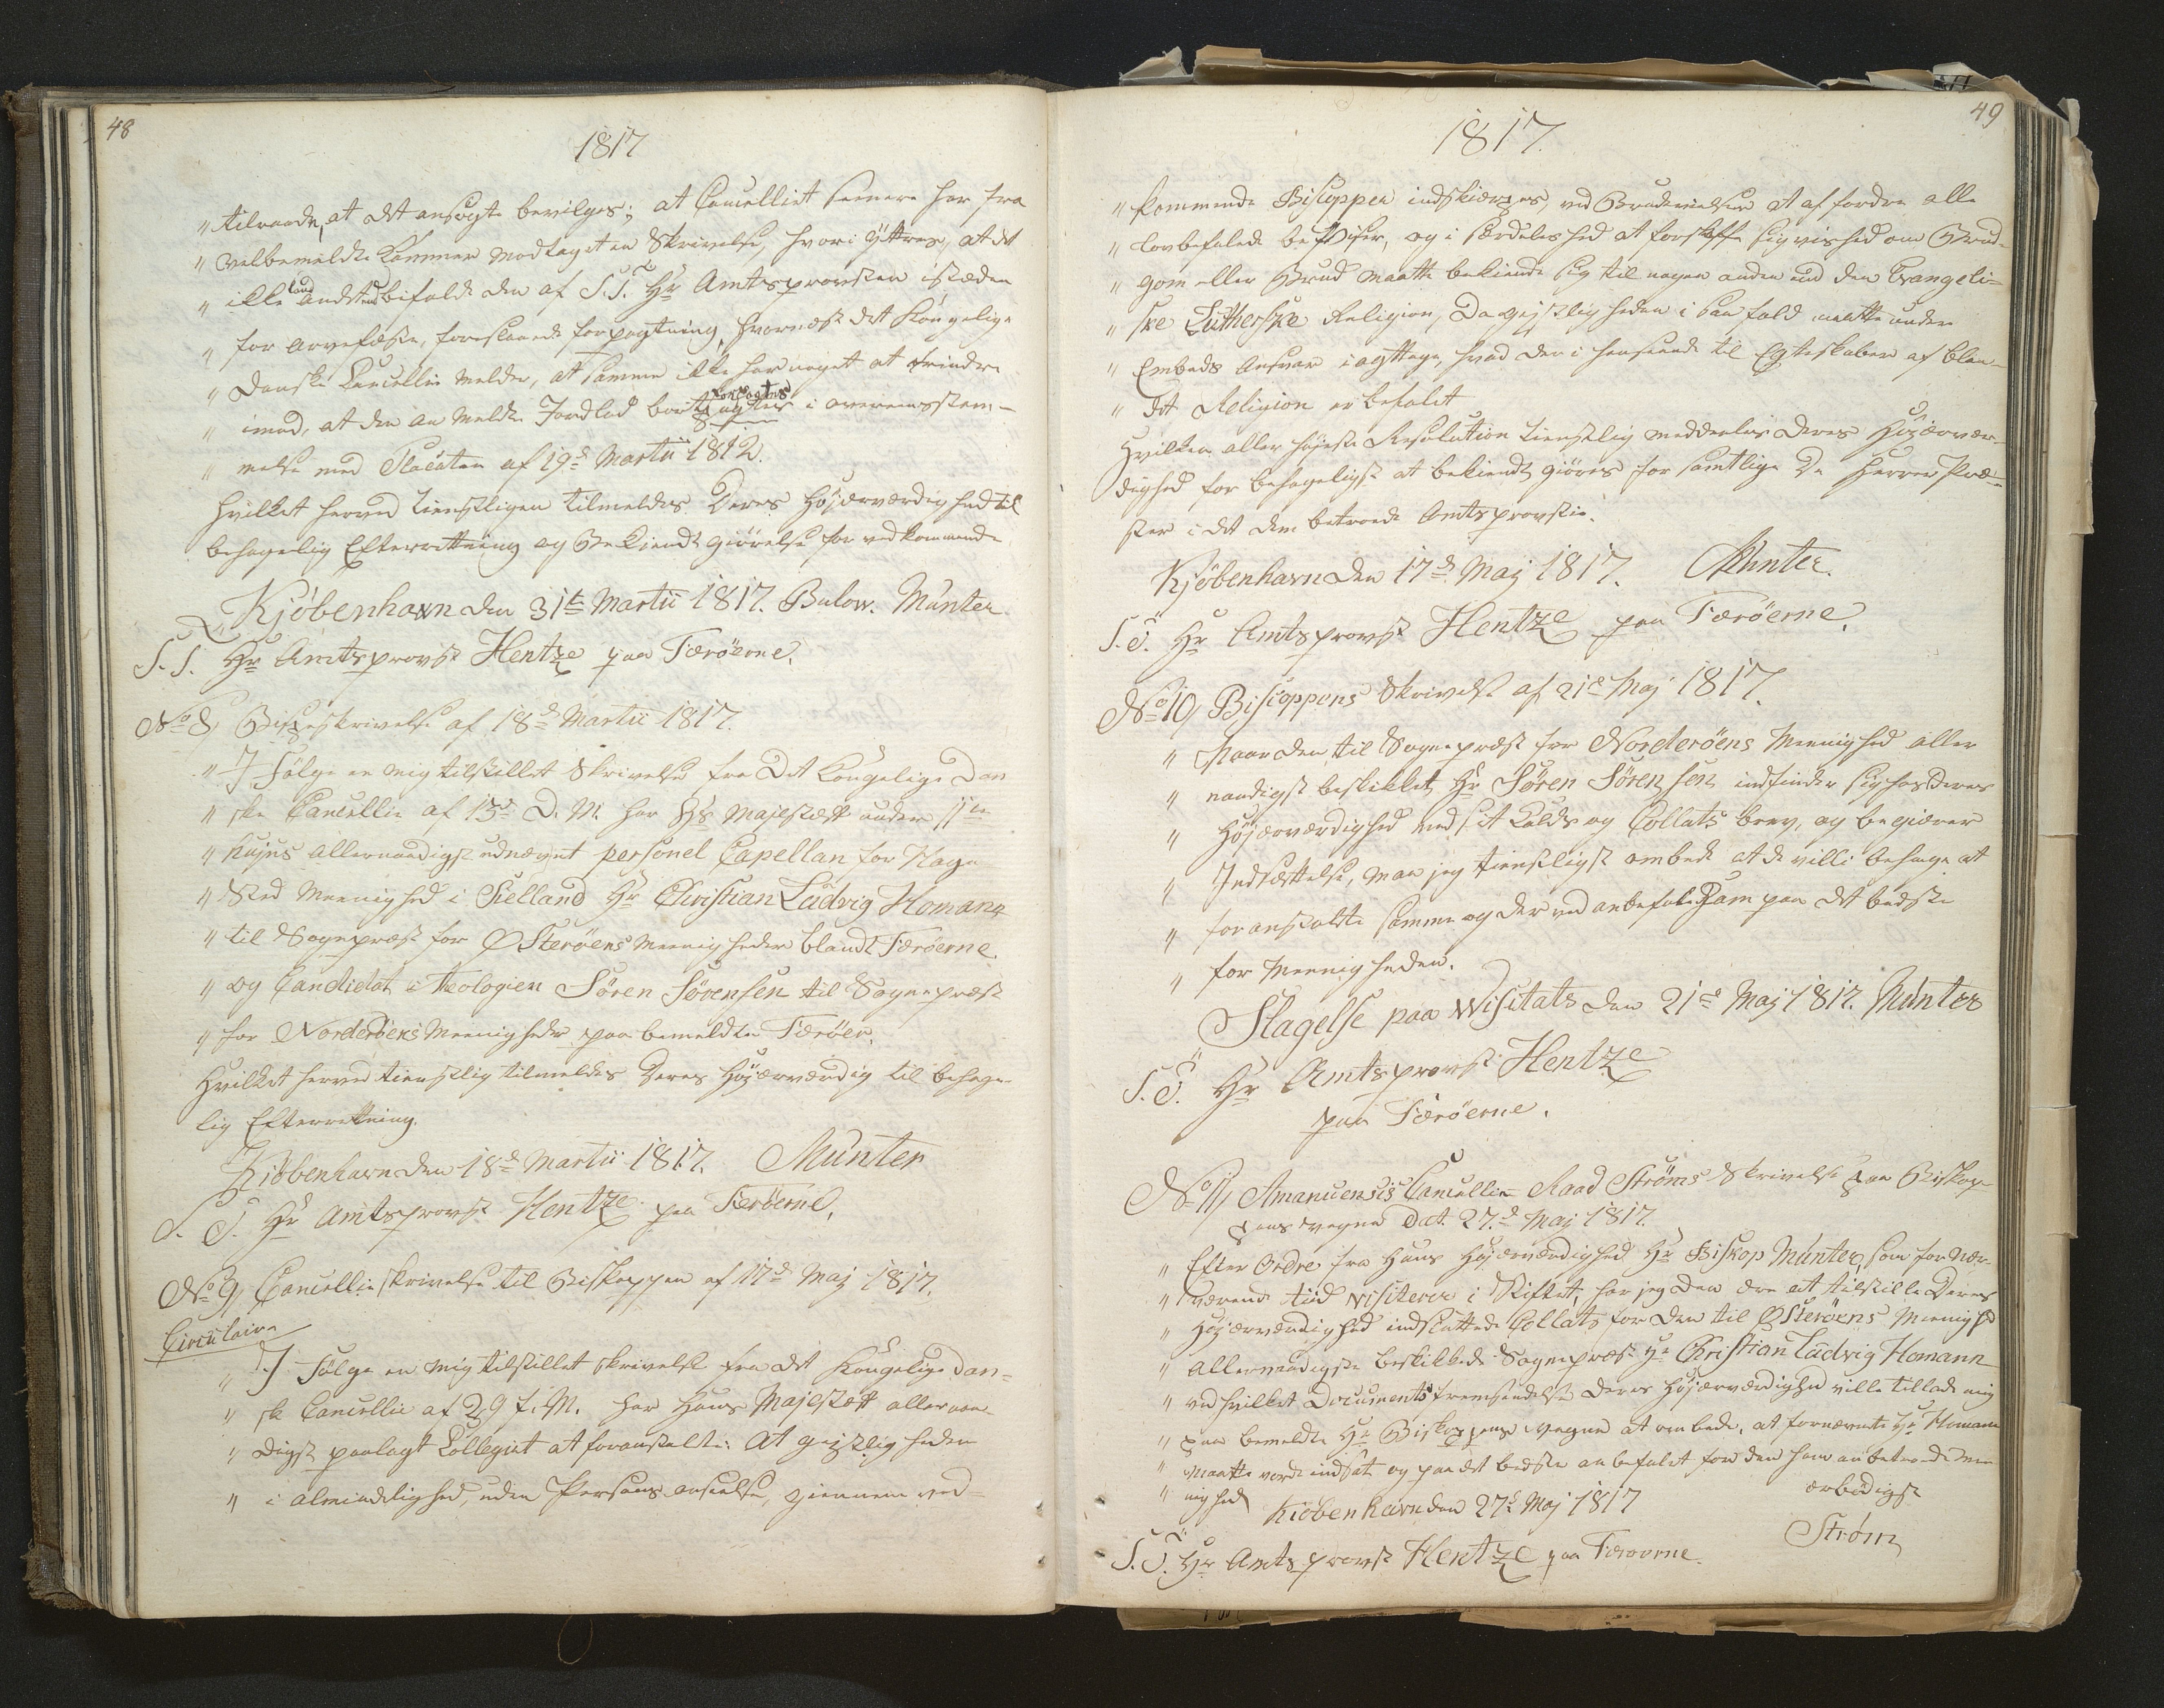 48
1817
" tilraade, at det ansøgte bevilges; at Cancelliet senere har fra
" velbemeldte Kammer modtaget en Skrivelse, hvori yttres, at det
" ikke kand andet end bifalde den af S. T. Hr Amtsprovsten istæden
" for Arvefæste, foreslaaede forpagtning, hvornæst det Kongelige
" Danske Cancellie melder, at samme ikke har noget at erindre
" imod, at den an meldte Jordlod bort forpagtes i overeensstem-
" melse med Placaten af 19de Martii 1812.
Hvilket herved tienstligen tilmeldes Deres Høiærværdighed til
behagelig Efterretning og Bekiendtgiørelse for vedkommende
Kjöbenhavn den 31te Martii 1817. Bulow. Münter
S. T. Hr Amtsprovst Hentze paa Færöerne.
No 8, Bispeskrivelse af 18de Martii 1817.
" I Følge en mig tilstillet Skrivelse fra Det Kongelige Dan
" ske Cancellie af 15de D. M. har Hs Majestæt under 11te
" hujus allernaadigst udnævnt personel Capellan for Mage
" Sted Meenighed i Sielland Hr Christian Ludvig Homann
" til Sognepræst for Österöens Meenigheder blandt Færöerne.
" og Candidat i Theologien Sören Sörensen til Sognepræst
" for Norderöens Meenigheder paa bemeldte Færöer.
Hvilket herved tienstlig tilmeldes Deres Høiærværdig til behage-
lig Efterretning.
Kiöbenhavn den 18de Martii 1817. Münter
S. T. Hr Amtsprovst Hentze paa Færöerne.
No 9, Cancellieskrivelse til Biskoppen af 17de Maj 1817.
Circulaire
" I Følge en mig tilstillet skrivelse fra det Kongelige Dan-
" ske Cancellie af 29 f. M. har Hans Majestæt allernaa-
" digst paalagt Collegiet at foranstalte: At geistligheden
" i almindelighed, uden Persons anseelse, giennem ved-
49
1817.
" kommende Biskopper indskiærpes, ved Brudevielser at affordre alle
" lovbefalede beviser, og i særdeleshed at forskaffe sig vished om Brud-
" gom eller Brud maatte bekiende sig til nogen anden end den Evangeli-
" ske Lutherske Religion, da geistligheden i saa fald maatte under
" Embeds Ansvar iagttage, hvad der i henseende til Egteskaber af blan-
" det Religion er befalet
Hvilken allerhøieste Resolution tienstlig meddeeles Deres Høiærvær-
dighed for behageligst at bekiendtgiøres for samtlige De Herrer Præ-
ster i det dem betroede Amtsprovstie.
Kjöbenhavn den 17de Maj 1817. Münter.
S. T. Hr Amtsprovst Hentze paa Færöerne.
No 10, Biscoppens Skrivelse af 21de Maj 1817.
" Naar den til Sognepræst for Norderöens Meenighed aller
" naadigst beskikket Hr Sören Sörensen indfinder sig hos Deres
" Høiærværdighed med sit Kalds og Collats brev, og begiærer
" Indsættelse, maa jeg tienstligst ombede at de ville behage at
" foranstalte samme og derved anbefale Ham paa det bedste
" for Meenigheden.
Slagelse paa Visitats den 21de Maj 1817. Münter
S. T. Hr Amtsprovst Hentze
paa Færöerne.
No 11, Amanuensis Cancellie Raad Ströms Skrivelse paa Biskop-
pens vegne Dat. 27de Maj 1817.
" Efter Ordre fra Hans Høiærværdighed Hr Biskop Münter, som for nær-
" værende tiid visiterer i Stiftet, har jeg den ære at tilstille Deres
" Høiærværdighed indsluttede Collats for den til Österöens Meenighd
" allernaadigste beskikkede Sognepræst Hr Christian Ludvig Homann
" ved hvilket Documents fremsendelse Deres Høiærværdighed ville tillade mig
" paa bemeldte Hr Biskoppens vegne at ombede, at fornævnte Hr Homann
" maatte vorde indsat og paa det bedste anbefalet for den ham anbetroede Mee
" nighed
Kiöbenhavn den 27de Maj 1817
ærbødigst
Ström
S. T. Hr Amtsprovst Hentze paa Færoerne.